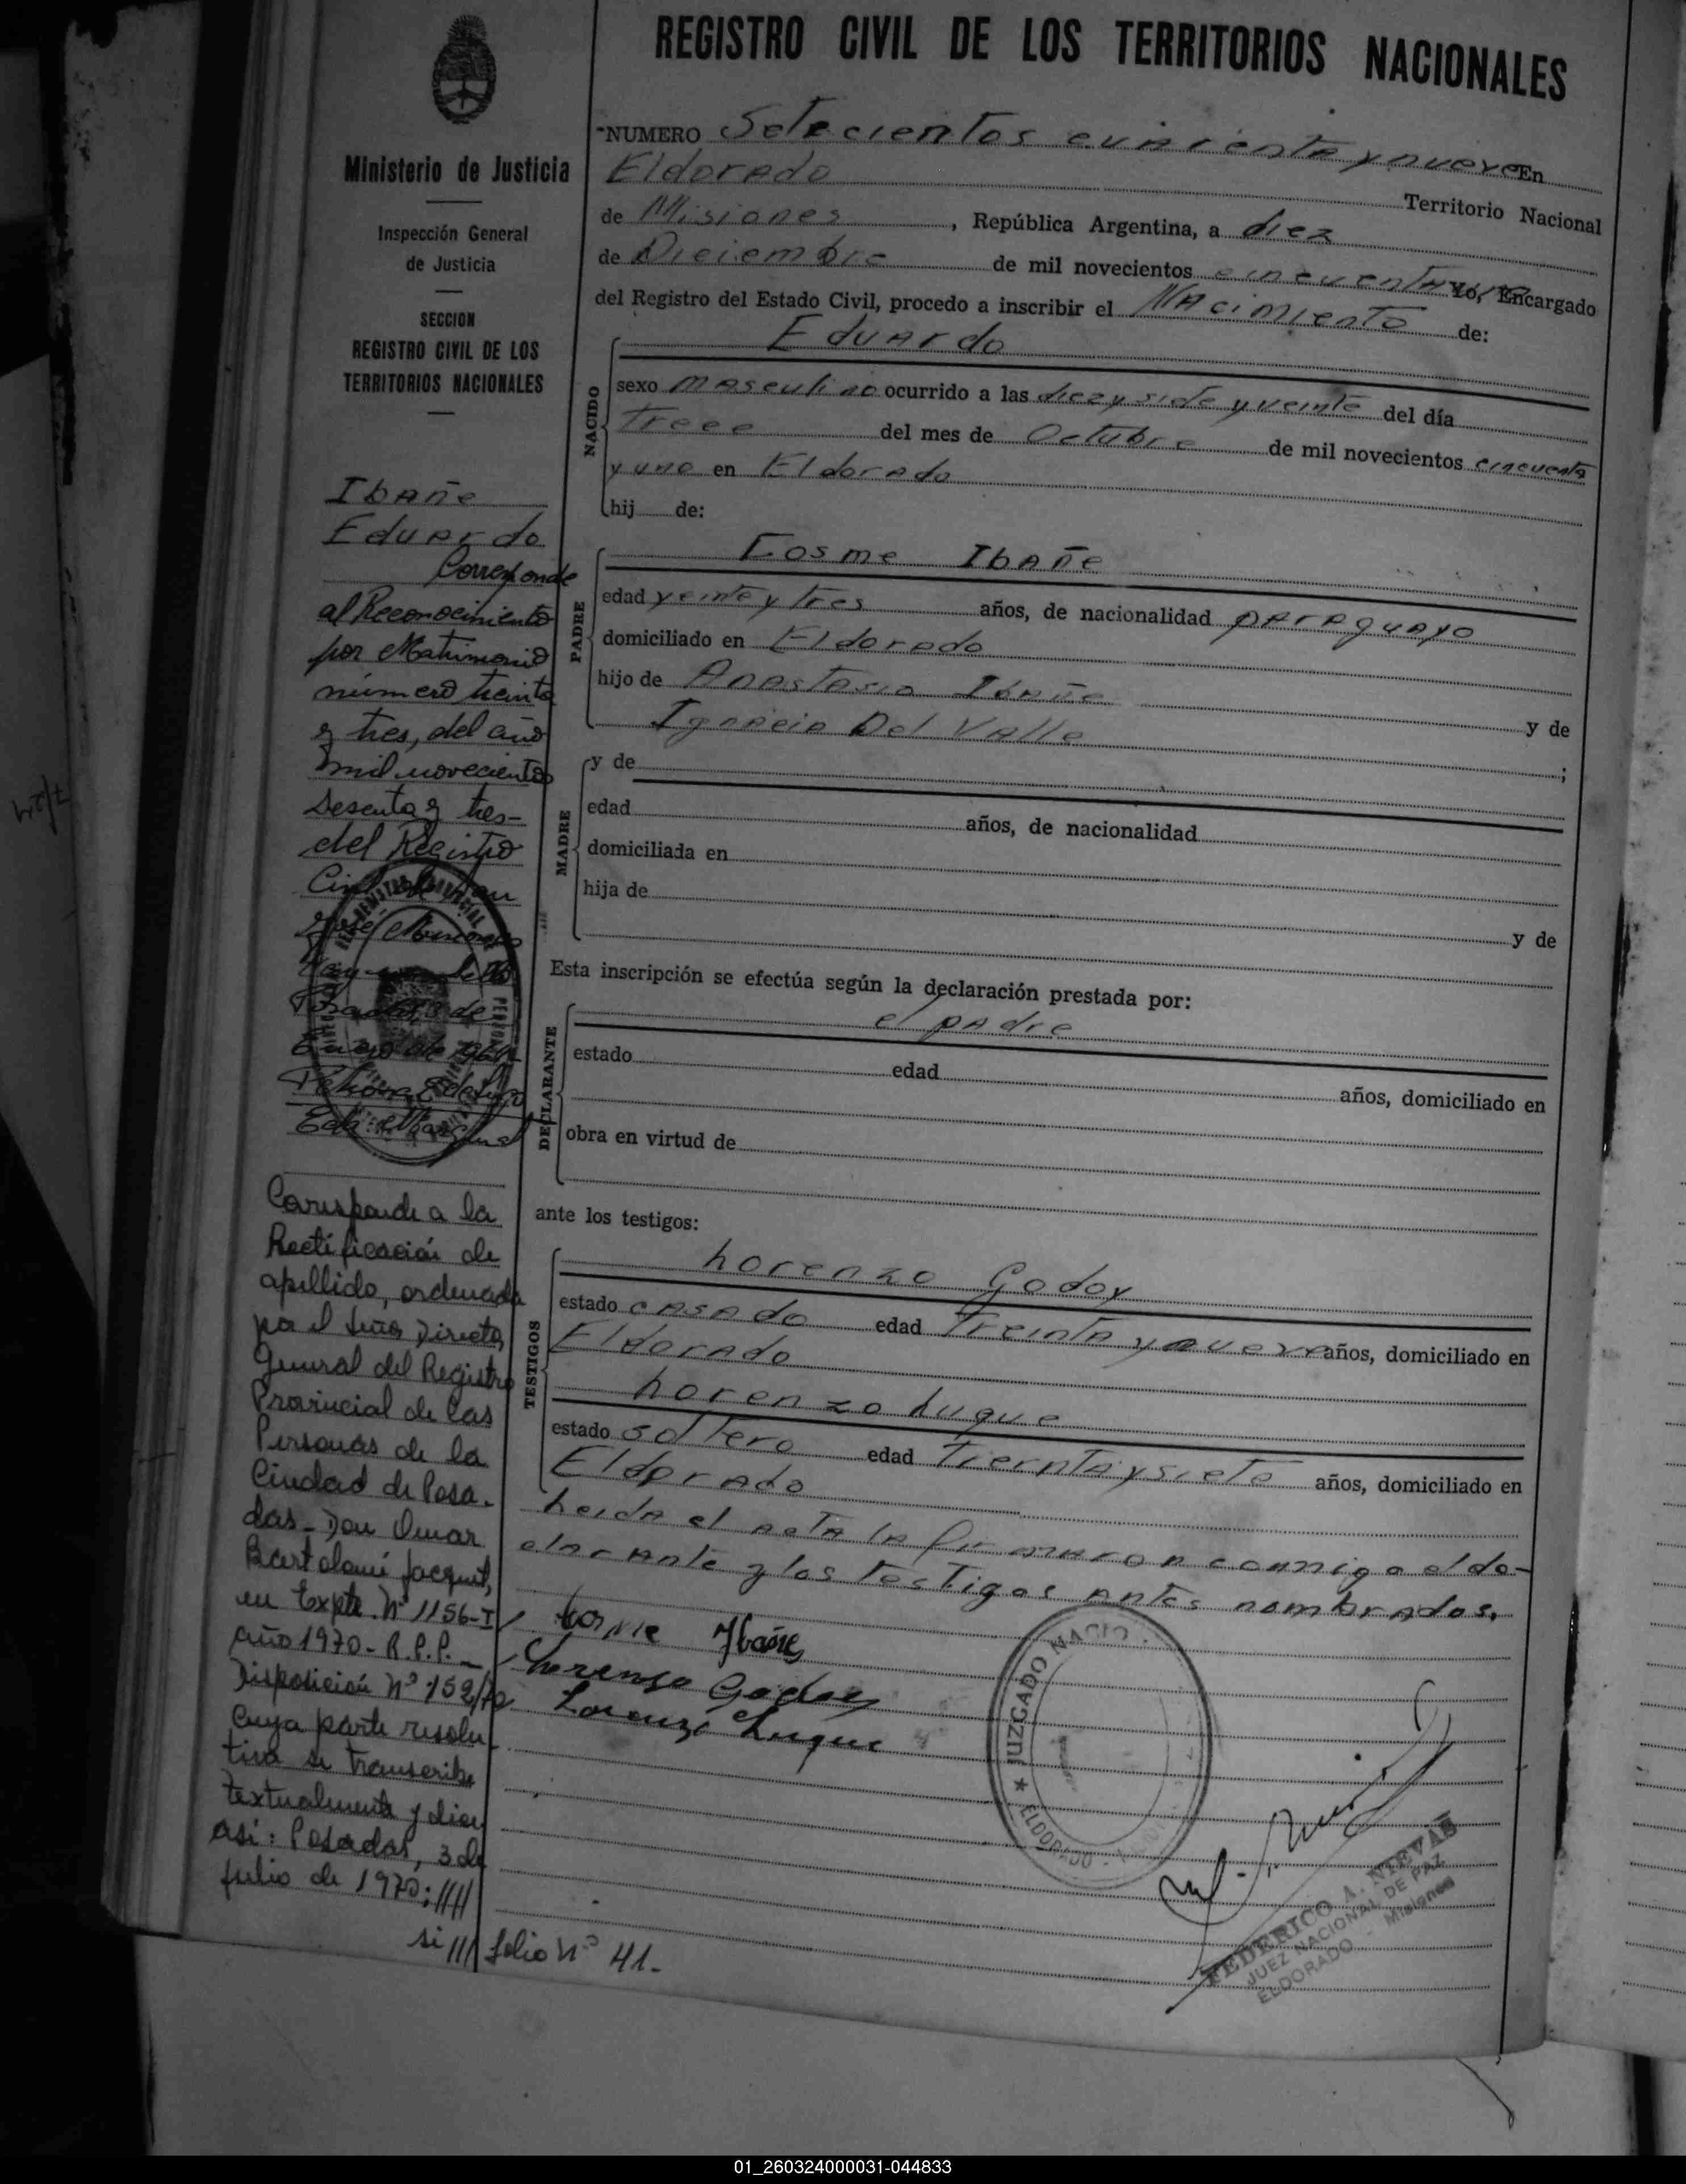 REGISTRO CIVIL DE LOS TERRITORIOS NACIONALES
Ministerio de Justicia
Inspección General
de Justicia
SECCION
REGISTRO CIVIL DE LOS
TERRITORIOS NACIONALES
NUMERO Setecientos cuarenta y nueve En
Eldorado Territorio Nacional
de Misiones, República Argentina, a diez
de Diciembre de mil novecientos cincuenta y uno Yo, Encargado
del Registro del Estado Civil, procedo a inscribir el Nacimiento de:
NACIDO
Eduardo
sexo masculino ocurrido a las diez y siete y veinte del día
trece del mes de Octubre de mil novecientos cincuenta
y uno en Eldorado
hij de:
PADRE
Cosme Ibañe
edad veinte y tres años, de nacionalidad paraguayo
domiciliado en Eldorado
hijo de Anastasio Ibañe y de
Ignacia Del Valle ;
MADRE
y de
edad años, de nacionalidad
domiciliada en
hija de
y de
Esta inscripción se efectúa según la declaración prestada por:
DECLARANTE
el padre
estado edad años, domiciliado en
obra en virtud de
ante los testigos:
TESTIGOS
Lorenzo Godoy
estado casado edad Treinta y nueve años, domiciliado en
Eldorado
Lorenzo Luque
estado soltero edad Treinta y siete años, domiciliado en
Eldorado
Leida el acta la firmaron conmigo el de-
clarante y los testigos antes nombrados.
Cosme Ybañe
Lorenso Godoy
Lorenzo Luque
JUZGADO NACIO
ELDORADO
FEDERICO A. NIEVAS
JUEZ NACIONAL DE PAZ
ELDORADO - Misiones
Ibañe
Eduardo
Corresponde
al Reconocimiento
por Matrimonio
número treinta
y tres, del año
mil novecientos
sesenta y tres-
del Registro
Corresponde a la
Rectificación de
apellido, ordenada
por el Señor Director
General del Registro
Provincial de las
Personas de la
Ciudad de Posa-
das - Don Omar
Bartolomé Jacquet,
en Expte. Nº 1156-I
año 1970 - R.P.P. -
Disposición Nº 152/70
cuya parte resolu-
tiva se transcribe
textualmente y dice
así: Posadas, 3 de
julio de 1970: ////
si /// folio Nº 41.-
01_260324000031-044833